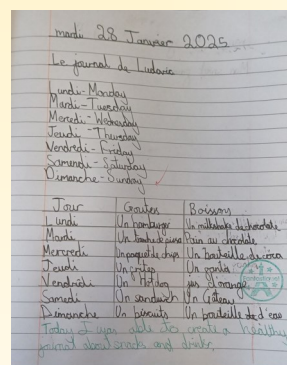 mardi 28 Janvier 2025
Le journal de Ludovic
Lundi - Monday
Mardi - Tuesday
Mercedi - Wednesday
Jeudi - Thursday
Vendredi - Friday
Samundi - Saturday
Dimanche - Sunday
Jour Goutes Boisson
Lundi Un hamburger Un milkshake de chocolate
Mardi Un tranche de pizza Pain au chocolate
Mercredi Un paquet de chips Un bouteille de coca
Jeudi Un frites Un fanta
Vendredi Un Hot dog jus d'orange
Samedi Un sandwich Un Gateau
Dimanche Un biscuits Un bouteille de d'eau
Today I was able to create a healthy
journal about snacks and drinks.